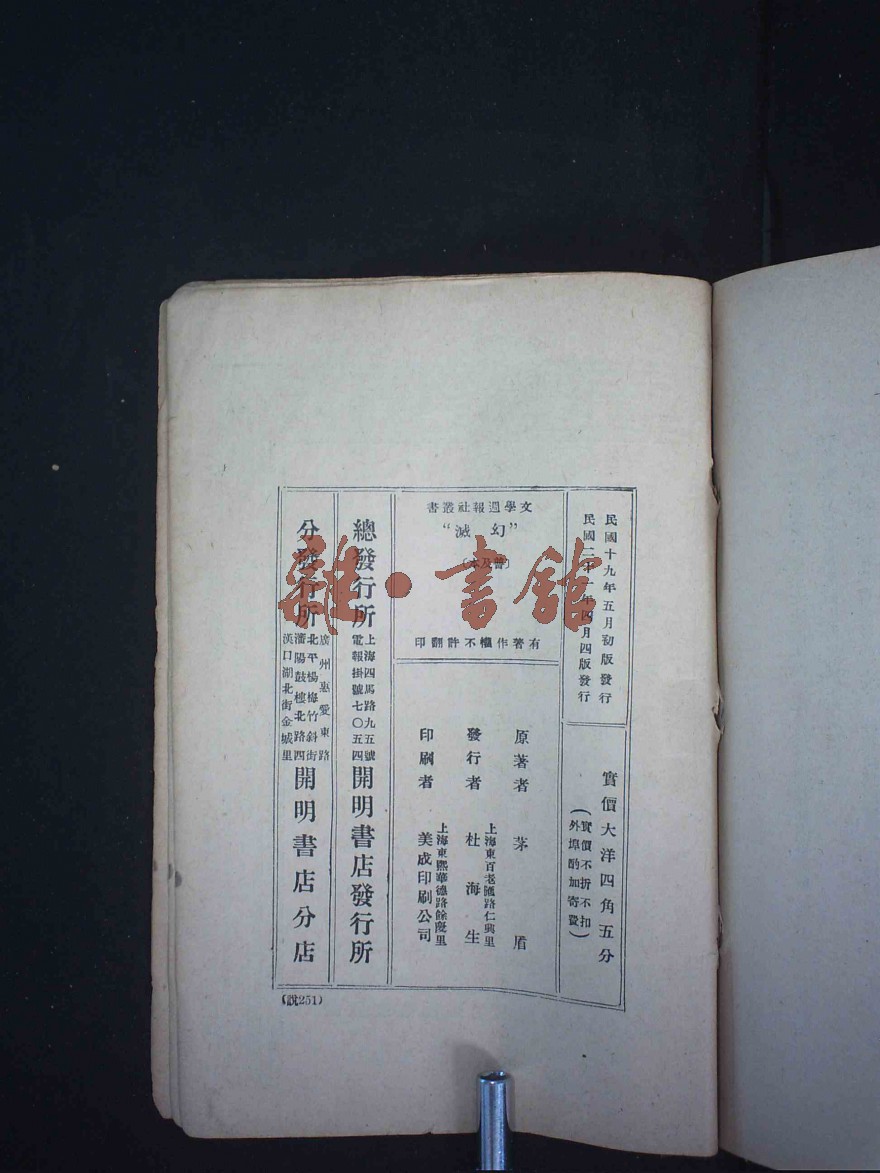 民國十九年五月初版發行
民國二十一年四月四版發行
實價大洋四角五分
(實價不折不扣
外埠酌加寄費)
文學週報社叢書
“幻滅”
(普及本)
有著作權不許翻印
原著者 茅盾
發行者 上海東百老匯路仁興里 杜海生
印刷者 上海東熙華德路餘慶里 美成印刷公司
總發行所 上海四馬路九五號 電報掛號七〇五四 開明書店發行所
分發行所
廣州惠愛東路
北平楊梅竹斜街
瀋陽鼓樓北路四
漢口湖北街金城里
開明書店分店
(說251)
雜·書館